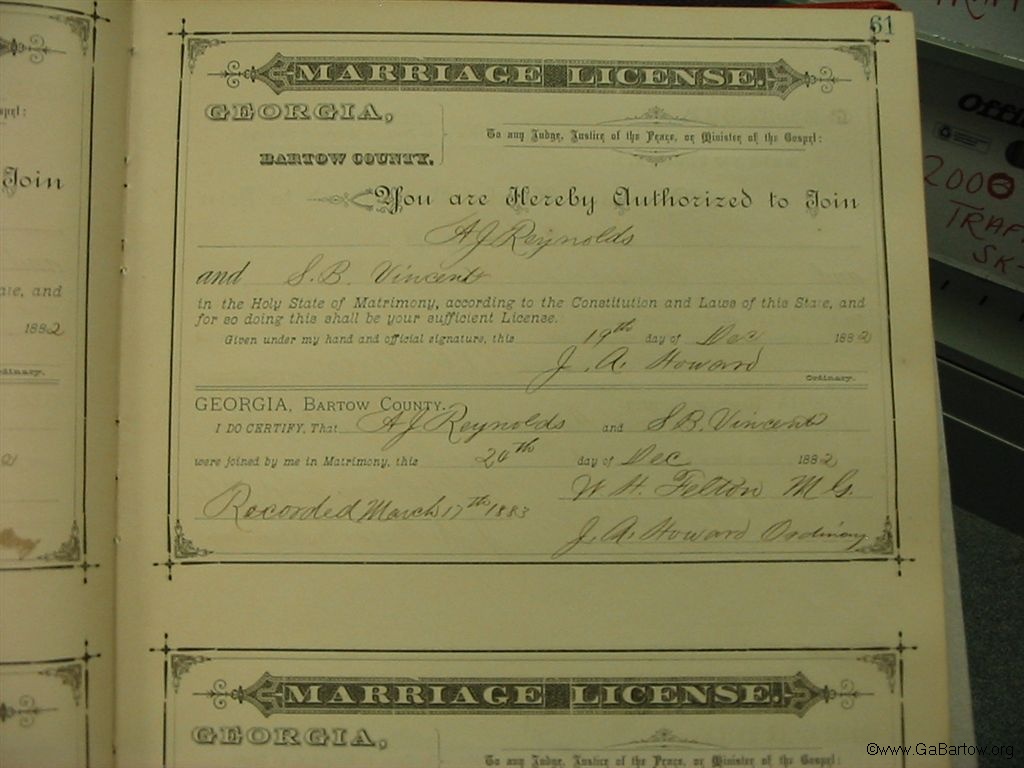 61
MARRIAGE LICENSE.
GEORGIA,
BARTOW COUNTY.
To any Judge, Justice of the Peace, or Minister of the Gospel:
You are Hereby Authorized to Join
A J Reynolds
and S. B. Vincent
in the Holy State of Matrimony, according to the Constitution and Laws of this State, and
for so doing this shall be your sufficient License.
Given under my hand and official signature, this 19th day of Dec 1882
J. A. Howard
Ordinary.
GEORGIA, BARTOW COUNTY.
I DO CERTIFY, That A J Reynolds and S B. Vincent
were joined by me in Matrimony, this 20th day of Dec 1882
W. H. Felton M G.
Recorded March 17th 1883
J. A. Howard Ordinary
MARRIAGE LICENSE.
GEORGIA,
To any Judge, Justice of the Peace, or Minister of the Gospel:
Join
and
1882
Ordinary.
Offi
2006
TRAF
SK-
©www.GaBartow.org